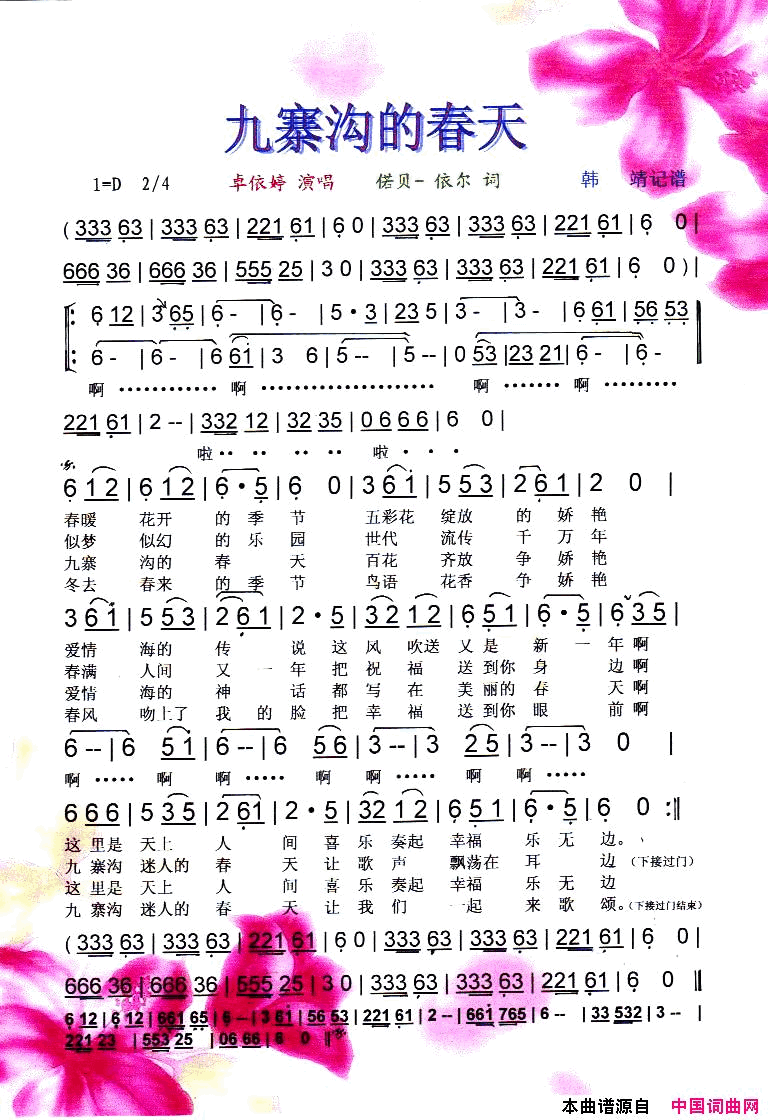 九寨沟的春天
1=D 2/4 卓依婷 演唱 偌贝-依尔 词 韩 靖记谱
(333 63|333 63|221 61|6 0|333 63|333 63|221 61|6 0|
666 36|666 36|555 25|3 0|333 63|333 63|221 61|6 0)|
6 12|3 65|6-|6-|5·3|235|3-|3-|6 61|56 53|
6-|6-|6 61|3 6|5--|5--|0 53|23 21|6-|6-
啊 ············ 啊 ······················ 啊 ········ 啊 ··········
221 61|2--|332 12|32 35|0 6 6 6|6 0|
啦·· ·· ·· ·· 啦· · · ·
6 12|6 12|6·5|6 0|3 61|5 53|2 61|2 0|
春暖 花开 的 季 节 五彩花 绽放 的 娇 艳
似梦 似幻 的 乐 园 世代 流传 千 万 年
九寨 沟的 春 天 百花 齐放 争 娇 艳
冬去 春来 的 季 节 鸟语 花香 争 娇 艳
3 61|5 53|2 61|2·5|32 12|6 51|6·5|6 35|
爱情 海的 传 说 这 风 吹送 又 是 新 一 年 啊
春满 人间 又 一 年 把 祝 福 送 到你 身 边 啊
爱情 海的 神 话 都 写 在 美 丽的 春 天 啊
春风 吻上了 我 的 脸 把 幸 福 送 到你 眼 前 啊
6--|6 51|6--|6 56|3--|3 25|3--|3 0|
啊 ····· 啊 啊 ····· 啊 啊 ····· 啊 啊 ·····
6 6 6|5 35|2 61|2·5|32 12|6 51|6·5|6 0:‖
这 里是 天上 人 间 喜 乐 奏起 幸福 乐 无 边。
九 寨沟 迷人的 春 天 让 歌 声 飘荡在 耳 边 (下接过门)
这 里是 天上 人 间 喜 乐 奏起 幸福 乐 无 边
九 寨沟 迷人的 春 天 让 我 们 一起 来 歌 颂。(下接过门结束)
(333 63|333 63|221 61|6 0|333 63|333 63|221 61|6 0|
666 36|666 36|555 25|3 0|333 63|333 63|221 61|6 0‖
6 12|6 12|661 65|6--|3 61|56 53|221 61|2--|661 765|6--|33 532|3--|
221 23|553 25|06 66|6 0‖
本曲谱源自 中国词曲网